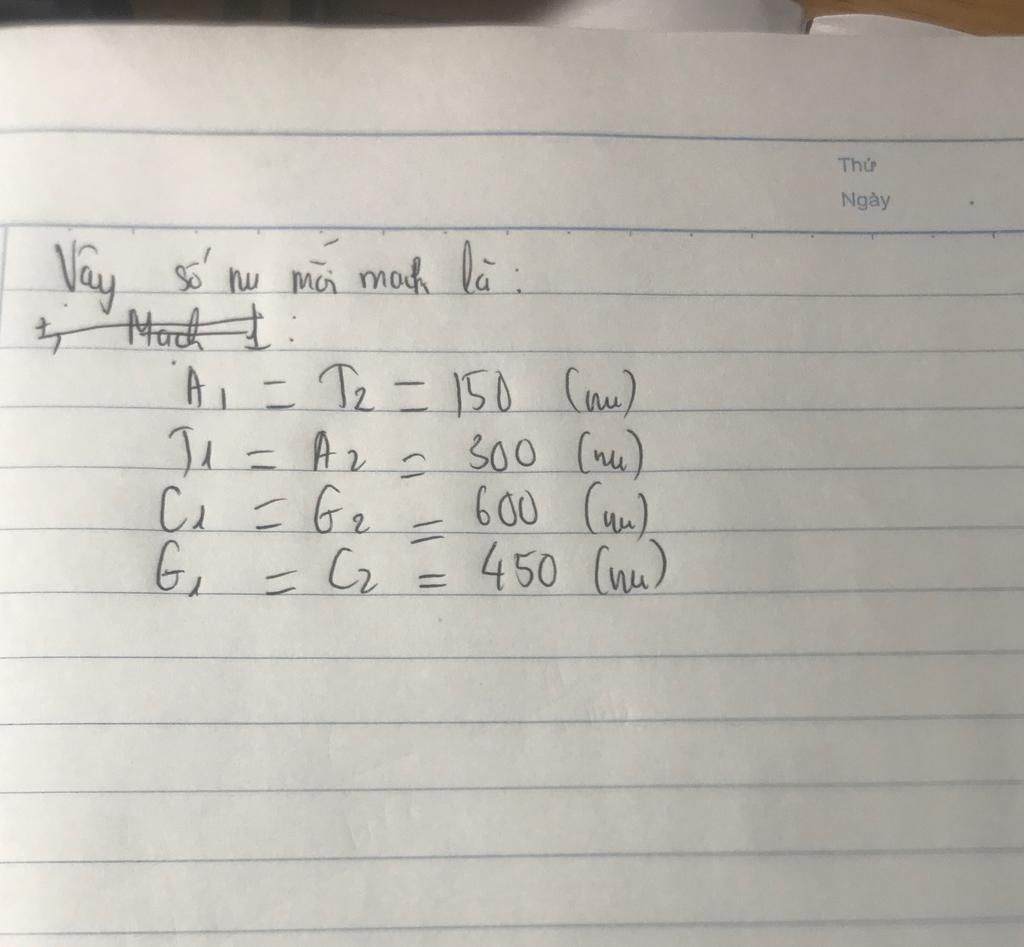 Thứ
Ngày
Vậy số nu mỗi mạch là :
+, Mạch 1 :
A1 = T2 = 150 (nu)
T1 = A2 = 300 (nu)
C1 = G2 = 600 (nu)
G1 = C2 = 450 (nu)